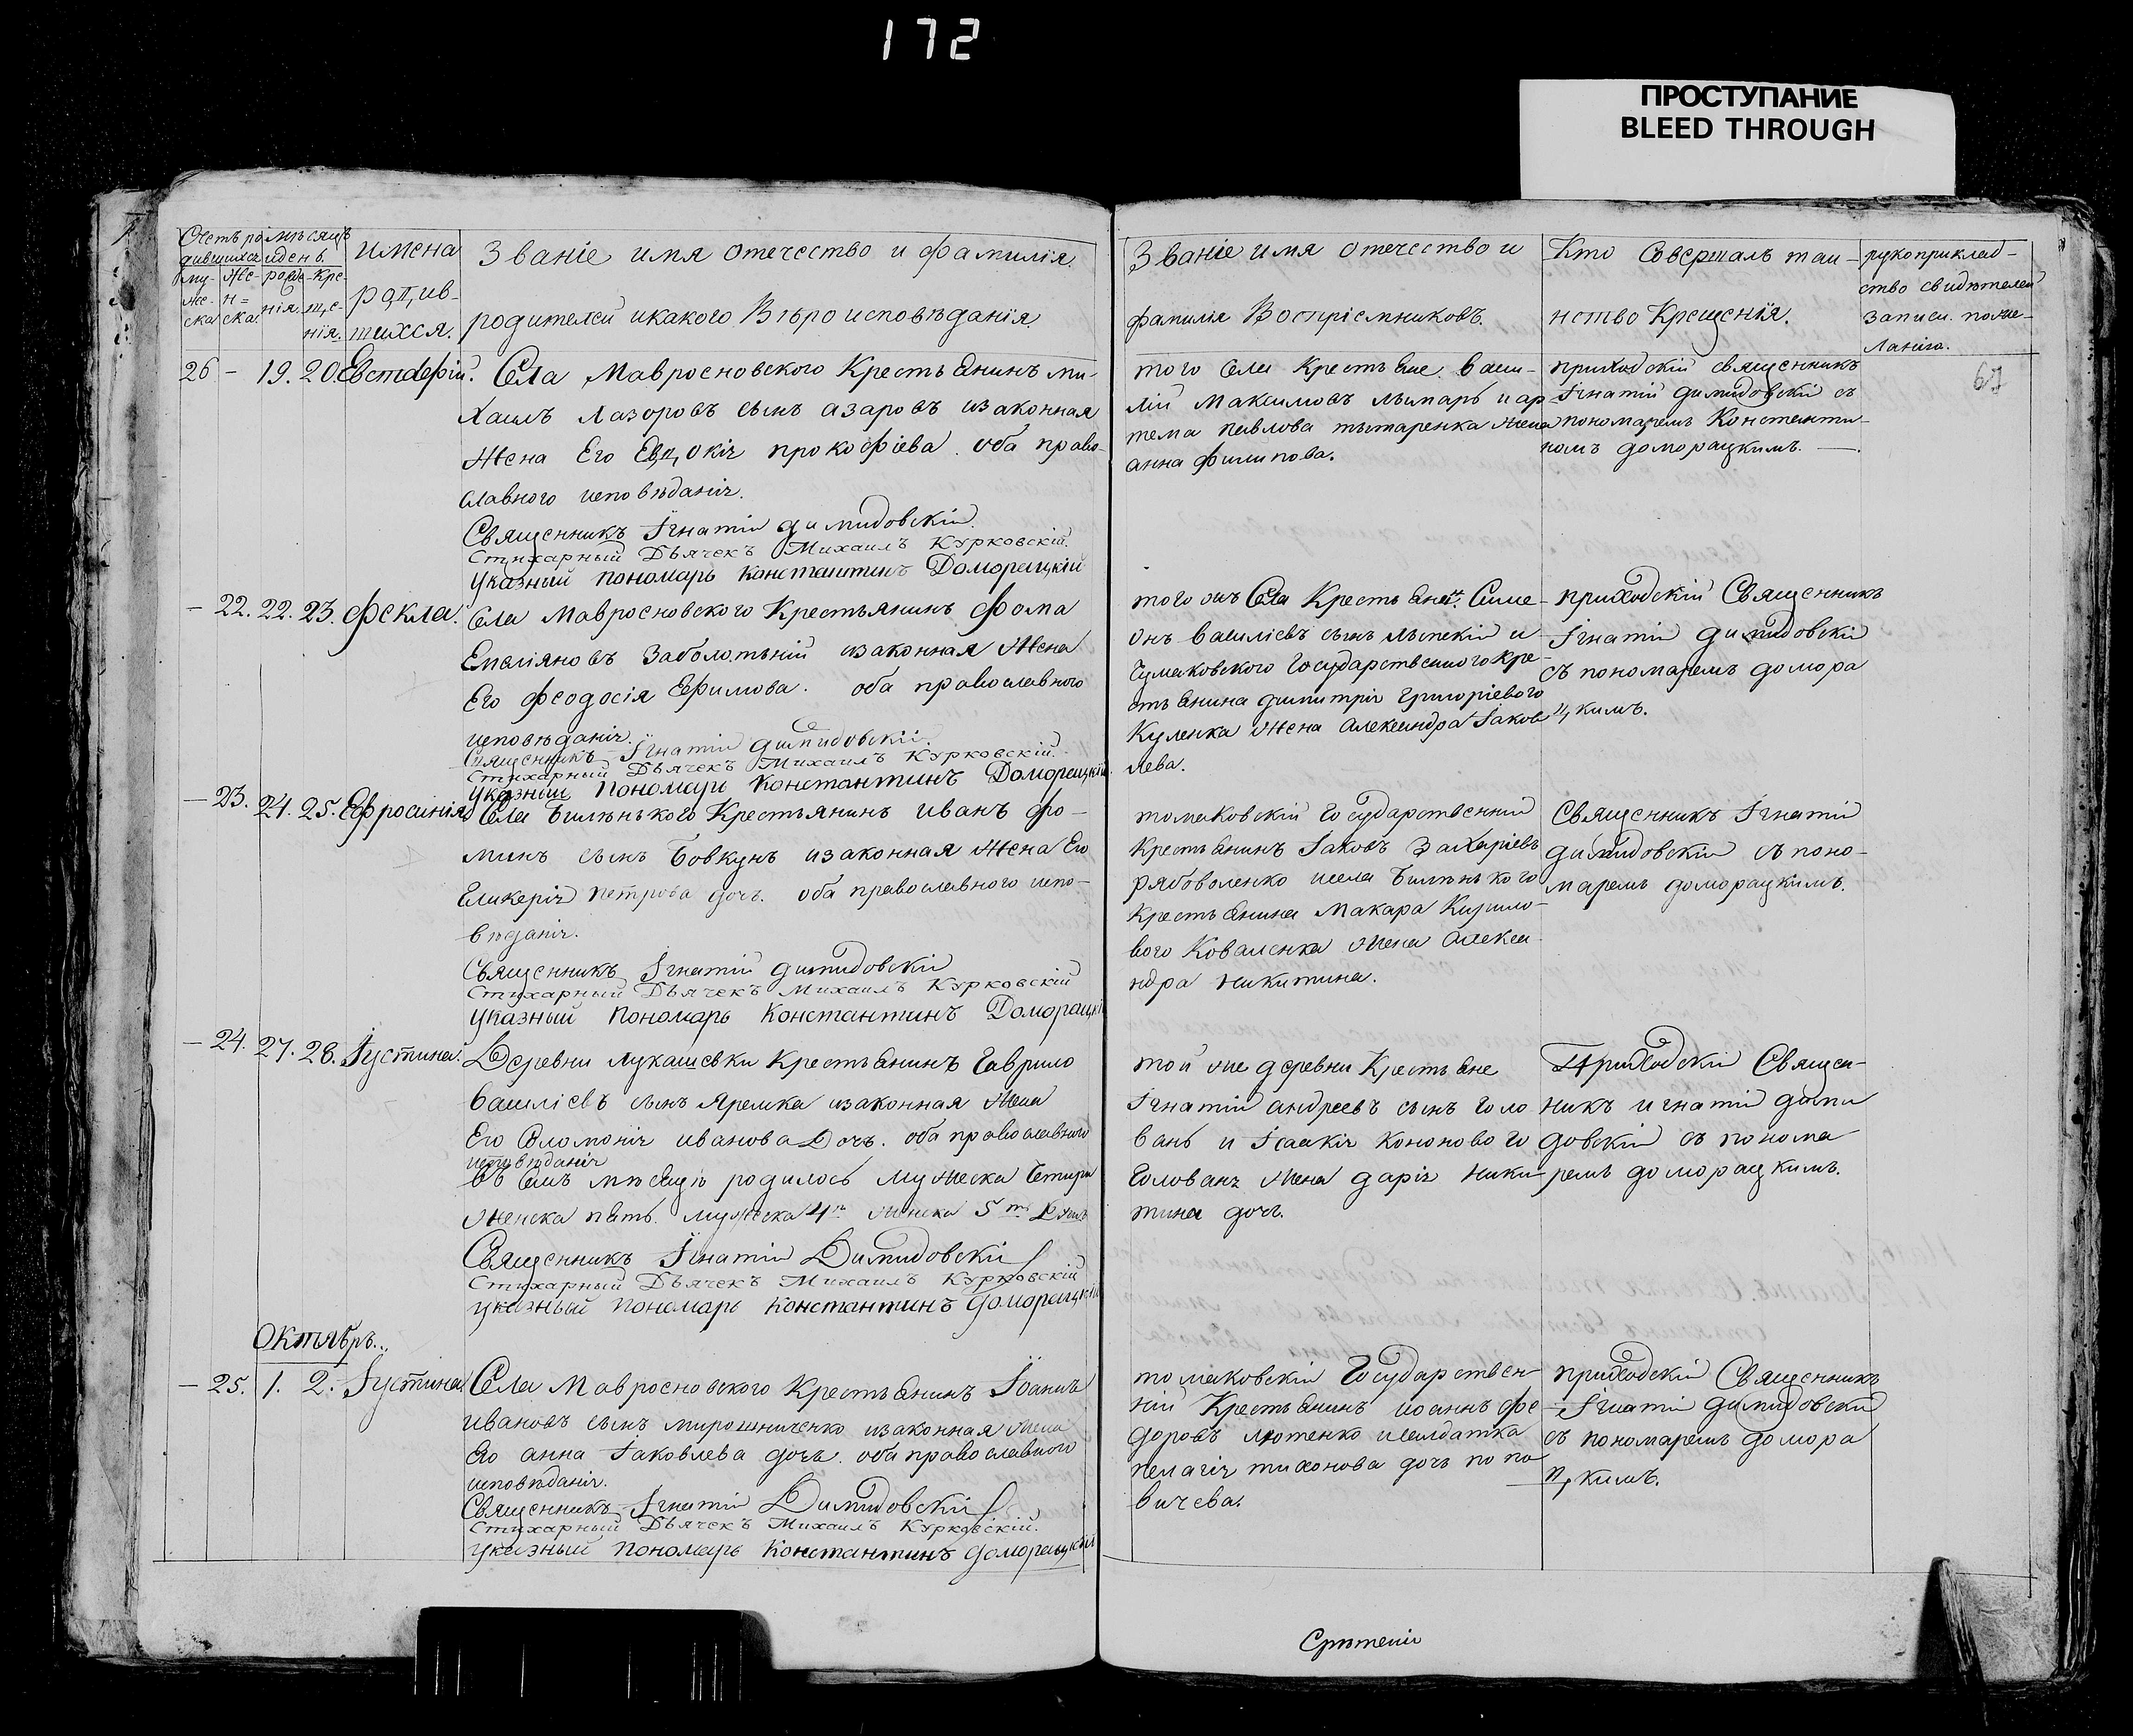 172
ПРОСТУПАНИЕ
BLEED THROUGH
Счетъ ро
дившихся
мѣсяцъ
и день
му-
же-
ска
Же-
н=
ска
рожде-
нія.
Кре-
ще-
нія.
имена
родив-
шихся.
Званіе имя отечество и фамилія
родителей икакого Вѣро исповѣданія
Званіе имя отечество и
фамилія Воспріемниковъ.
Кто Совершалъ таи-
нство Крещенія.
рукоприклад-
ство свидѣтелей
записи поже-
ланію.
67
26 - 19. 20. Евстафій.
Села Мавросновского Крестьянинъ ми-
хаилъ Лазоровъ сынъ азаровъ изаконная
Жена Его Евдокія прокофіева. оба право-
славного исповѣданія.
Священникъ Ігнатій Димидовскій
Стихарный Дьячекъ Михаилъ Курковскій.
указный пономарь Константинъ Доморацкій
того Села Крестьяне. Васи-
лій Максимовъ лымарь и ар
тема павлова тытаренка жена
анна филипова.
приходскій священникъ
Ігнатій димидовскій съ
пономаремъ Константи-
номъ доморацкимъ.
- 22. 22. 23. Фекла.
Села Мавросновского Крестьянинъ Фома
Емеліяновъ Заболотьній изаконная Жена
Его Феодосія Ефимова. оба православного
исповѣданія.
Священникъ Ігнатій Димидовскій.
Стихарный Дьячекъ Михаилъ Курковскій.
указный пономарь Константинъ Доморацкій
Села Крестьяне. Симе-
онъ Василіевъ сынъ и
Чумаковского Государственного Кре-
стьянина димитрія Григоріевого
Куленка жена Александра Іаков
лева.
приходскій Священникъ
Ігнатій димидовскій
съ пономаремъ домора
цкимъ.
- 23. 24. 25. Ефросинія
Села Биленького Крестьянинъ Иванъ Фо-
минъ сынъ Бовкунъ изаконная Жена Его
Гликерія Петрова дочь. оба православного испо-
вѣданія.
Священникъ Ігнатій Димидовскій
Стихарный Дьячекъ Михаилъ Курковскій
указный Пономарь Константинъ Доморацкій
томаковскій Государственній
Крестьянинъ Іаковъ Захаріевъ
Рябоволенко исела Биленького
Крестьянина Макара Кирило-
вого Коваленка жена Алекса-
ндра никитина.
Священникъ Ігнатій
димидовскій съ поно-
маремъ доморацкимъ.
- 24. 27. 28. Іустина.
Деревни Лукашевки Крестьянинъ Гаврило
Василіевъ сынъ Яремка изаконная Жена
Его Соломонія иванова Дочь. оба православного
исповѣданія
Въ семъ мѣсяцѣ родилось мужеска Четыри
женска пять. мужеска 4
Священникъ Ігнатій Димидовскій
Стихарный Дьячекъ Михаилъ Курковскій
указный пономарь Константинъ Доморацкій
той же деревни Крестьяне
Ігнатій андреевъ сынъ Голо
вань и Ісаакія Кононового
Голованя жена дарія Ники-
тина дочь.
Приходскій Священ-
никъ игнатій дими
довскій съ понома
ремъ доморацкимъ.
Октябрь.
- 25. 1. 2. Іустина.
Села Мавросновского Крестьянинъ Іоаннъ
Ивановъ сынъ мирошниченко изаконная жена
Его анна Іаковлева дочь. оба православного
исповѣданія.
Священникъ Ігнатій Димидовскій
Стихарный Дьячекъ Михаилъ Курковскій.
указный пономарь Константинъ доморацкій
томаковскій Государствен-
ній Крестьянинъ иоаннъ Фе
доровъ лютенко исолдатка
пелагія тихонова дочь попо
вичева.
приходскій Священникъ
Ігнатій димидовскій
съ пономаремъ домора
цкимъ.
Срѣтенія